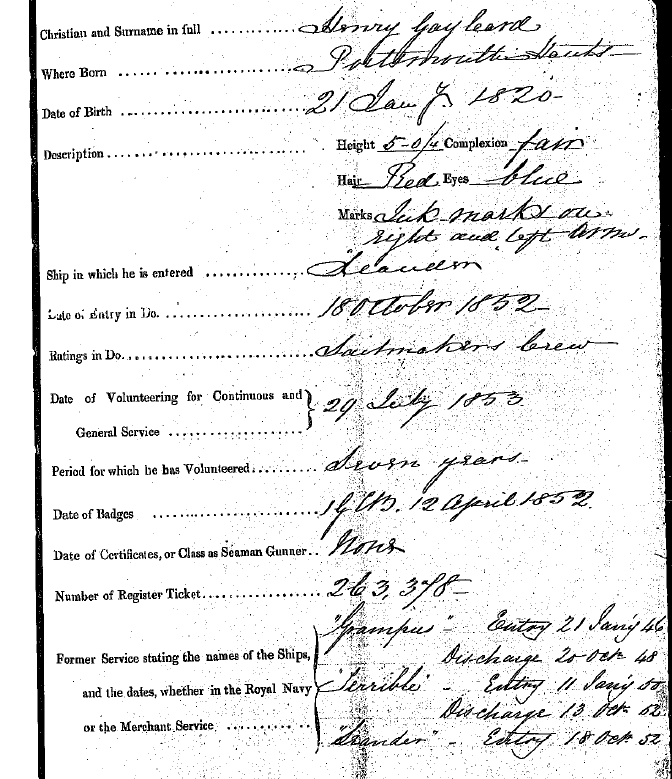 Christian and Surname in full .......... Henry Gayleard
Where Born ...... Portsmouth Hants
Date of Birth .......... 21 Jany. 1820
Description .......... Height 5-0¼ Complexion fair
Hair Red Eyes blue
Marks Ink marks on
right and left Arms.
Ship in which he is entered .......... Leander
Date of Entry in Do. .......... 18 October 1852
Ratings in Do. .......... Sailmakers Crew
Date of Volunteering for Continuous and
General Service .......... 29 July 1853
Period for which he has Volunteered .......... Seven years
Date of Badges .......... 1 G.C.B. 12 April 1852.
Date of Certificates, or Class as Seaman Gunner .. None
Number of Register Ticket .......... 263,378
"Grampus" - Entry 21 Jany 46
Former Service stating the names of the Ships, Discharge 20 Oct 48
and the dates, whether in the Royal Navy "Terrible" - Entry 11 Jany 50
or the Merchant Service .......... Discharge 13 Oct 52
"Leander" - Entry 18 Oct 52